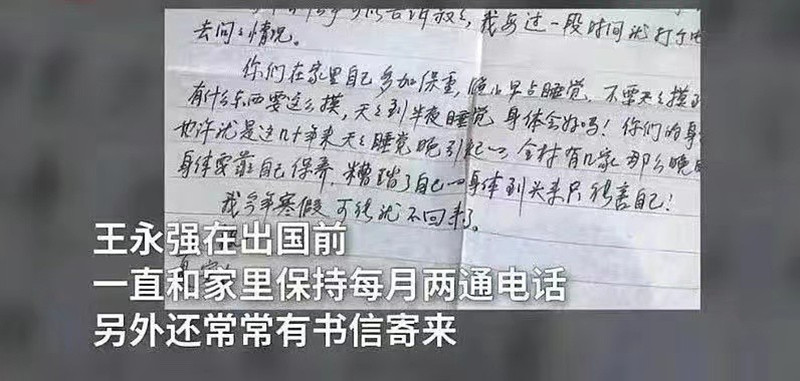 可以告诉叔叔,我每过一段时间就打个电
去问问情况。
你们在家里自己多加保重,晚上早点睡觉,不要天天摸到
有什么东西要这么摸,天天到半夜睡觉身体会好吗!你们的身
也许就是这几十年来天天睡觉晚引起的,全村有几家那么晚睡
身体要靠自己保养,糟踏了自己的身体到头来只能害自己!
我今年寒假可能就不回来了。
王永强在出国前
一直和家里保持每月两通电话
另外还常常有书信寄来